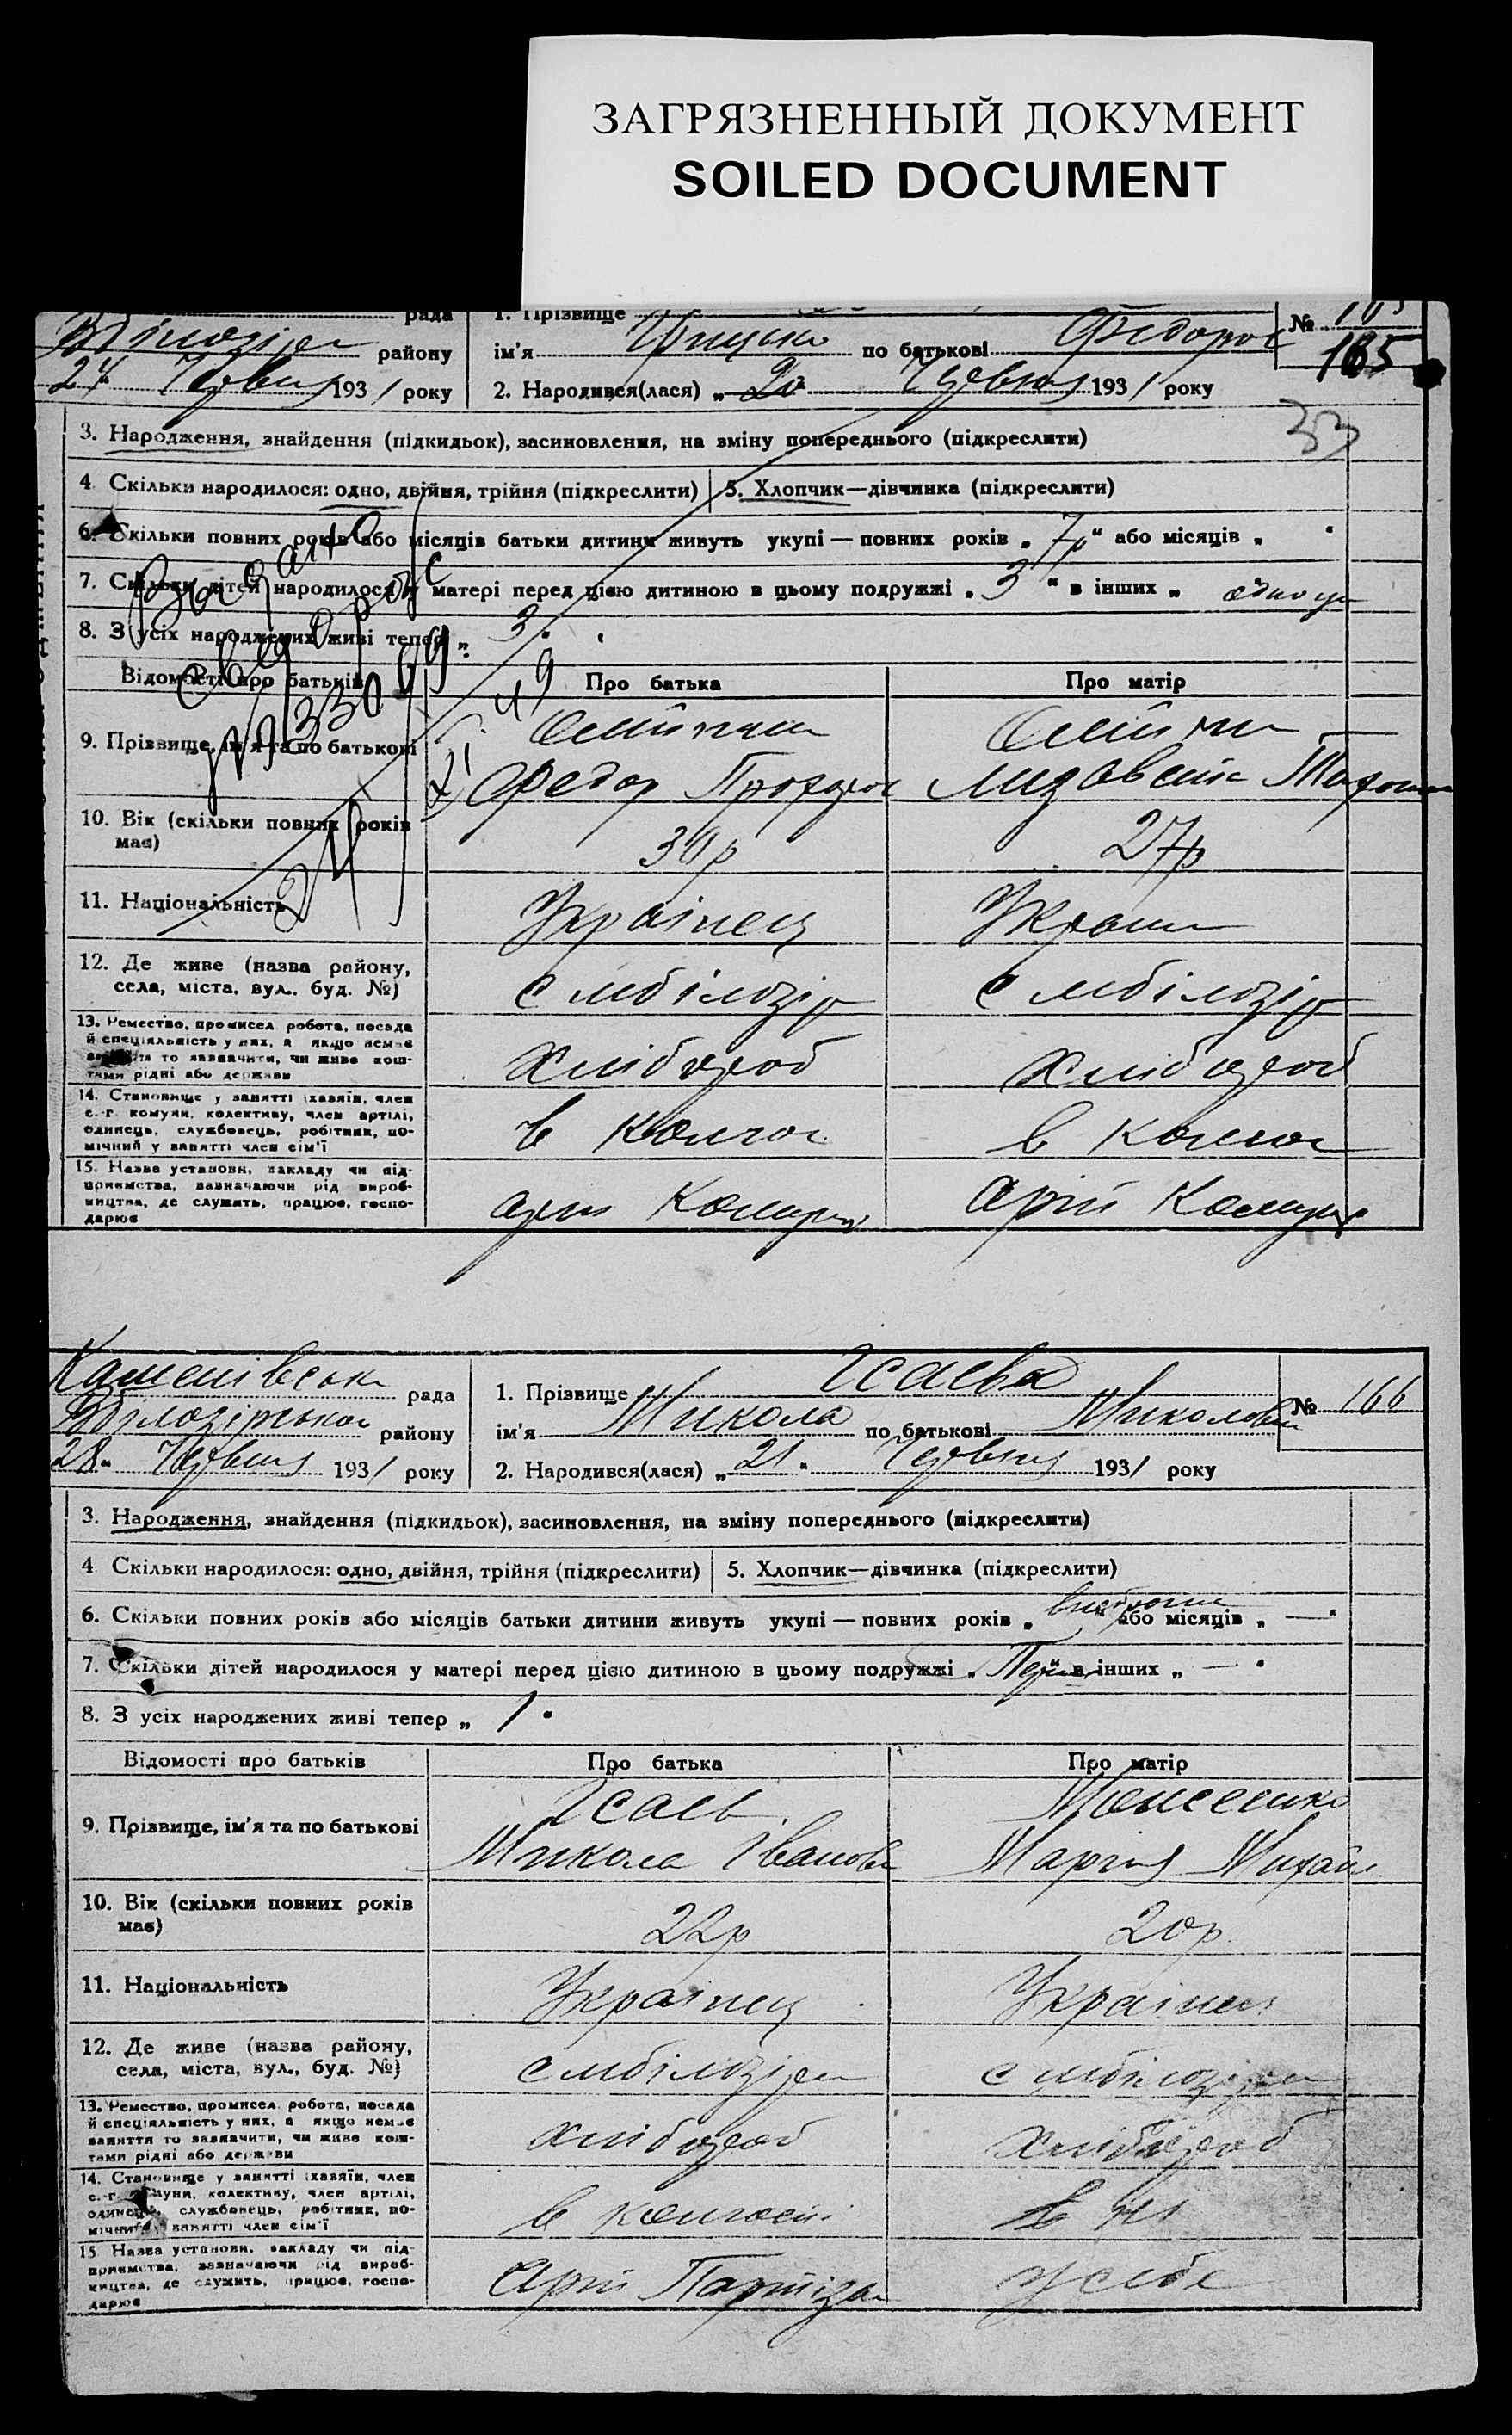 ЗАГРЯЗНЕННЫЙ ДОКУМЕНТ
SOILED DOCUMENT
рада
1. Прізвище
№
району
ім'я Грицько по батькові Федоров
165
24 Червня 1931 року
2. Народився(лася) „ 20 Червня 1931 року
33
3. Народження, знайдення (підкидьок), засиновлення, на зміну попереднього (підкреслити)
4 Скільки народилося: одно, двійня, трійня (підкреслити)
5. Хлопчик—дівчинка (підкреслити)
6. Скільки повних років або місяців батьки дитини живуть укупі — повних років „ 7р “ або місяців „
7. Скільки дітей народилося у матері перед цією дитиною в цьому подружжі „ 3 “ в інших „
8. З усіх народжених живі тепер „ 3
Відомості про батьків
Про батька
Про матір
9. Прізвище, ім'я та по батькові
Федор
Лизавета
10. Вік (скільки повних років має)
30р
27р
11. Національність
Українец
12. Де живе (назва району, села, міста, вул., буд. №)
с мбілозір
с мбілозір
13. Ремество, промисел робота, посада й спеціяльність у них, а якщо немає заняття то зазначити, чи живе коштами рідні або держави
Хлібороб
Хлібороб
14. Становище у занятті (хазяїн, член с.-г. комуни, колективу, член артілі, одинець, службовець, робітник, помічний у занятті член сім'ї
в колгос
в колгос
15. Назва установи, закладу чи підприємства, зазначаючи рід виробництва, де служить, працює, господарює
Видано
свидоцтво
24
Каменівська рада
1. Прізвище Ісаева
№ 166
Білозірського району
ім'я Микола по батькові Миколович
28 Червня 1931 року
2. Народився(лася) „ 21 “ Червня 1931 року
3. Народження, знайдення (підкидьок), засиновлення, на зміну попереднього (підкреслити)
4 Скільки народилося: одно, двійня, трійня (підкреслити)
5. Хлопчик—дівчинка (підкреслити)
6. Скільки повних років або місяців батьки дитини живуть укупі — повних років „ або місяців „ —
7. Скільки дітей народилося у матері перед цією дитиною в цьому подружжі „ “ в інших „ —
8. З усіх народжених живі тепер „ 1
Відомості про батьків
Про батька
Про матір
9. Прізвище, ім'я та по батькові
Ісаев
Микола Іванов
Марія Михайл
10. Вік (скільки повних років має)
22р
20р
11. Національність
Українец
12. Де живе (назва району, села, міста, вул., буд. №)
с мбілозіри
с мбілозіри
13. Ремество, промисел робота, посада й спеціяльність у них, а якщо немає заняття то зазначити, чи живе коштами рідні або держави
Хлібороб
Хлібороб
14. Становище у занятті (хазяїн, член с.-г. комуни, колективу, член артілі, одинець, службовець, робітник, помічний у занятті член сім'ї
в колгосп
15. Назва установи, закладу чи підприємства, зазначаючи рід виробництва, де служить, працює, господарює
Арт Партізан
у себе